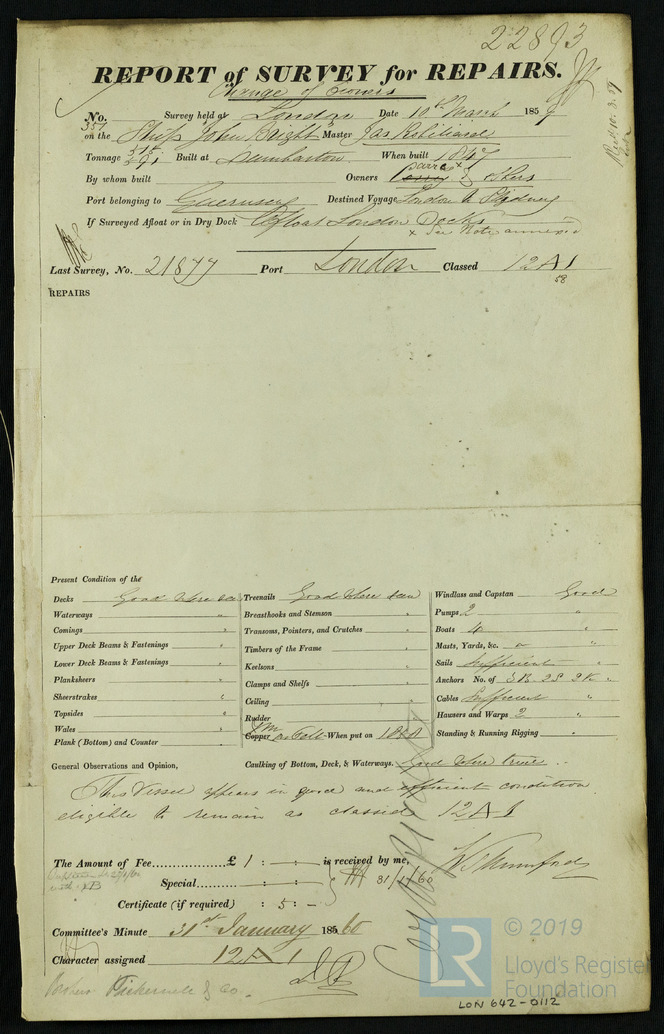 22893
REPORT of SURVEY for REPAIRS.
Change of Owners
No. 351 Survey held at London Date 10th March 1859
on the Ship John Bright Master Jas
Tonnage 591 Built at Dumbarton When built 1847
By whom built Owners & others
Port belonging to Guernsey Destined Voyage London to Sydney
If Surveyed Afloat or in Dry Dock Afloat London Docks
x See Note annexed
Last Survey, No. 21877 Port London Classed 12 A 1
58
REPAIRS
Present Condition of the
Decks Good where seen Treenails Good where seen Windlass and Capstan Good
Waterways " Breasthooks and Stemson " Pumps 2 "
Comings " Transoms, Pointers, and Crutches " Boats 4 "
Upper Deck Beams & Fastenings " Timbers of the Frame " Masts, Yards, &c. "
Lower Deck Beams & Fastenings " Keelsons " Sails Sufficient "
Planksheers " Clamps and Shelfs " Anchors No. of 3B. 2S 2K "
Sheerstrakes " Ceiling " Cables Sufficient "
Topsides " Rudder " Hawsers and Warps 2 "
Wales " Copper YM over Felt When put on Standing & Running Rigging "
Plank (Bottom) and Counter "
General Observations and Opinion, Caulking of Bottom, Deck, & Waterways. Good where
This Vessel appears in good and efficient condition
eligible to remain as classed 12 A 1
The Amount of Fee £ 1 : - : - is received by me,
Special - : - : - 31/1/60
Certificate (if required) : 5 : -
Committee's Minute 31st January 1860
Character assigned 12 A 1
& Co.
LR © 2019
Lloyd's Register
Foundation
LON 642-0112